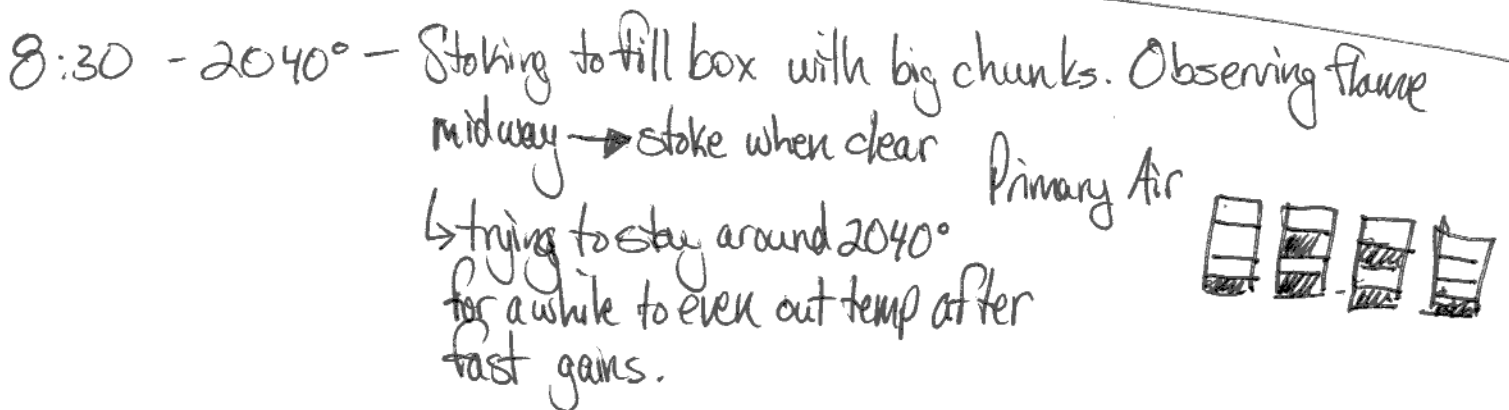 8:30 - 2040° - Stoking to fill box with big chunks. Observing flame
midway → stoke when clear
Primary Air
↳ trying to stay around 2040°
for a while to even out temp after
fast gains.